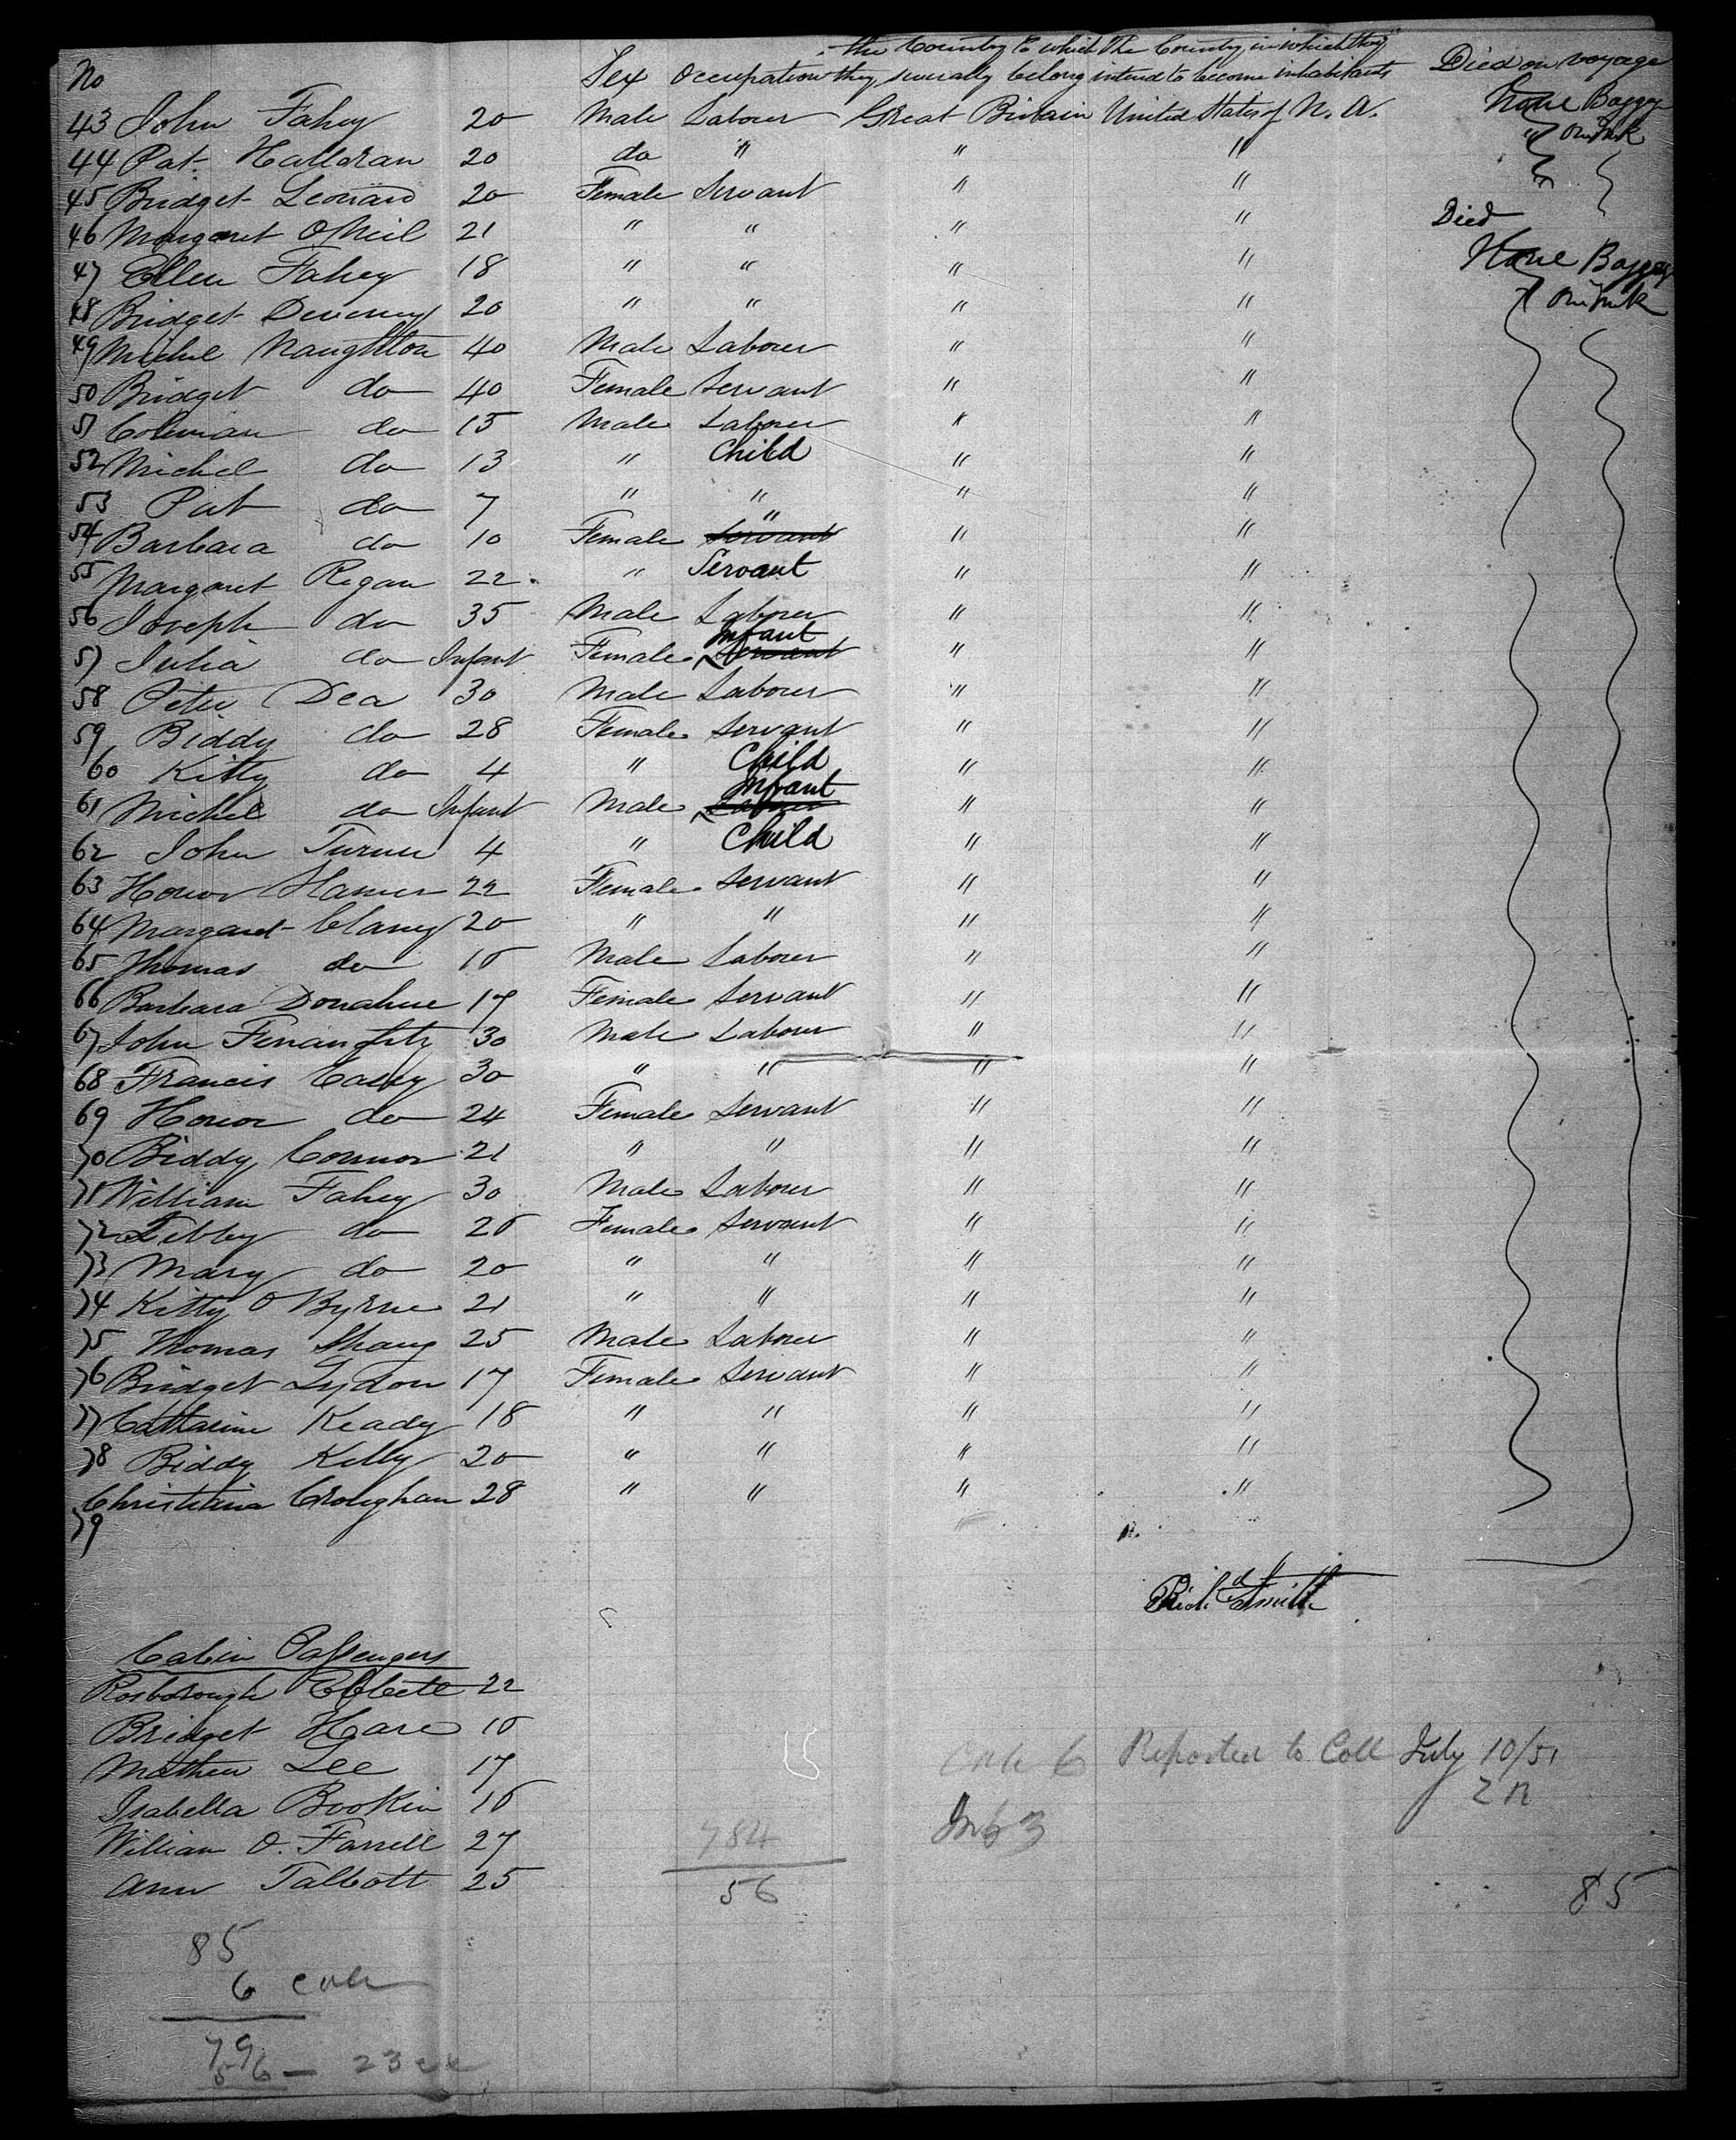 No Sex Occupation the Country to which they severally belong The Country in which they intend to become inhabitants Died on voyage
43 John Fahey 20 Male Laborer Great Britain United States of N. A. None Baggage
44 Pat Halloran 20 do " " " " one Trunk
45 Bridget Leonard 20 Female Servant " "
46 Margaret O Neil 21 " " " " Died
47 Ellen Fahey 18 " " " " None Baggage
48 Bridget Deveney 20 " " " " one Trunk
49 Michel Naughton 40 Male Laborer " "
50 Bridget do 40 Female Servant " "
51 Coleman do 15 Male Laborer " "
52 Michel do 13 " Child " "
53 Pat do 7 " " " "
54 Barbara do 10 Female " Servant " "
55 Margaret Regan 22 " Servant " "
56 Joseph do 35 Male Laborer " "
57 Julia do Infant Female Infant Servant " "
58 Peter Dea 30 Male Laborer " "
59 Biddy do 28 Female Servant " "
60 Kitty do 4 " Child " "
61 Michel do Infant Male Infant Laborer " "
62 John Turner 4 " Child " "
63 Honor 22 Female Servant " "
64 Margaret Clancy 20 " " " "
65 Thomas do 16 Male Laborer " "
66 Barbara Donahue 17 Female Servant " "
67 John 30 Male Laborer " "
68 Francis Casey 30 " " " "
69 Honor do 24 Female Servant " "
70 Biddy Connor 21 " " " "
71 William Fahey 30 Male Laborer " "
72 Libby do 26 Female Servant " "
73 Mary do 20 " " " "
74 Kitty O Byrne 21 " " " "
75 Thomas 25 Male Laborer " "
76 Bridget Lydon 17 Female Servant " "
77 Catharine Keady 18 " " " "
78 Biddy Kelly 20 " " " "
Christiana Croughan 28 " " " "
79
Richd Smith
Cabin Passengers
Rosborough 22
Bridget Hare 16
Mathew Lee 17
Cab 6 Reported to Coll July 10/51
Isabella Bookin 16
William O. Farrell 27
784
Inf 3
Ann Talbott 25
56
85
85
6 cab
79
56 — 23